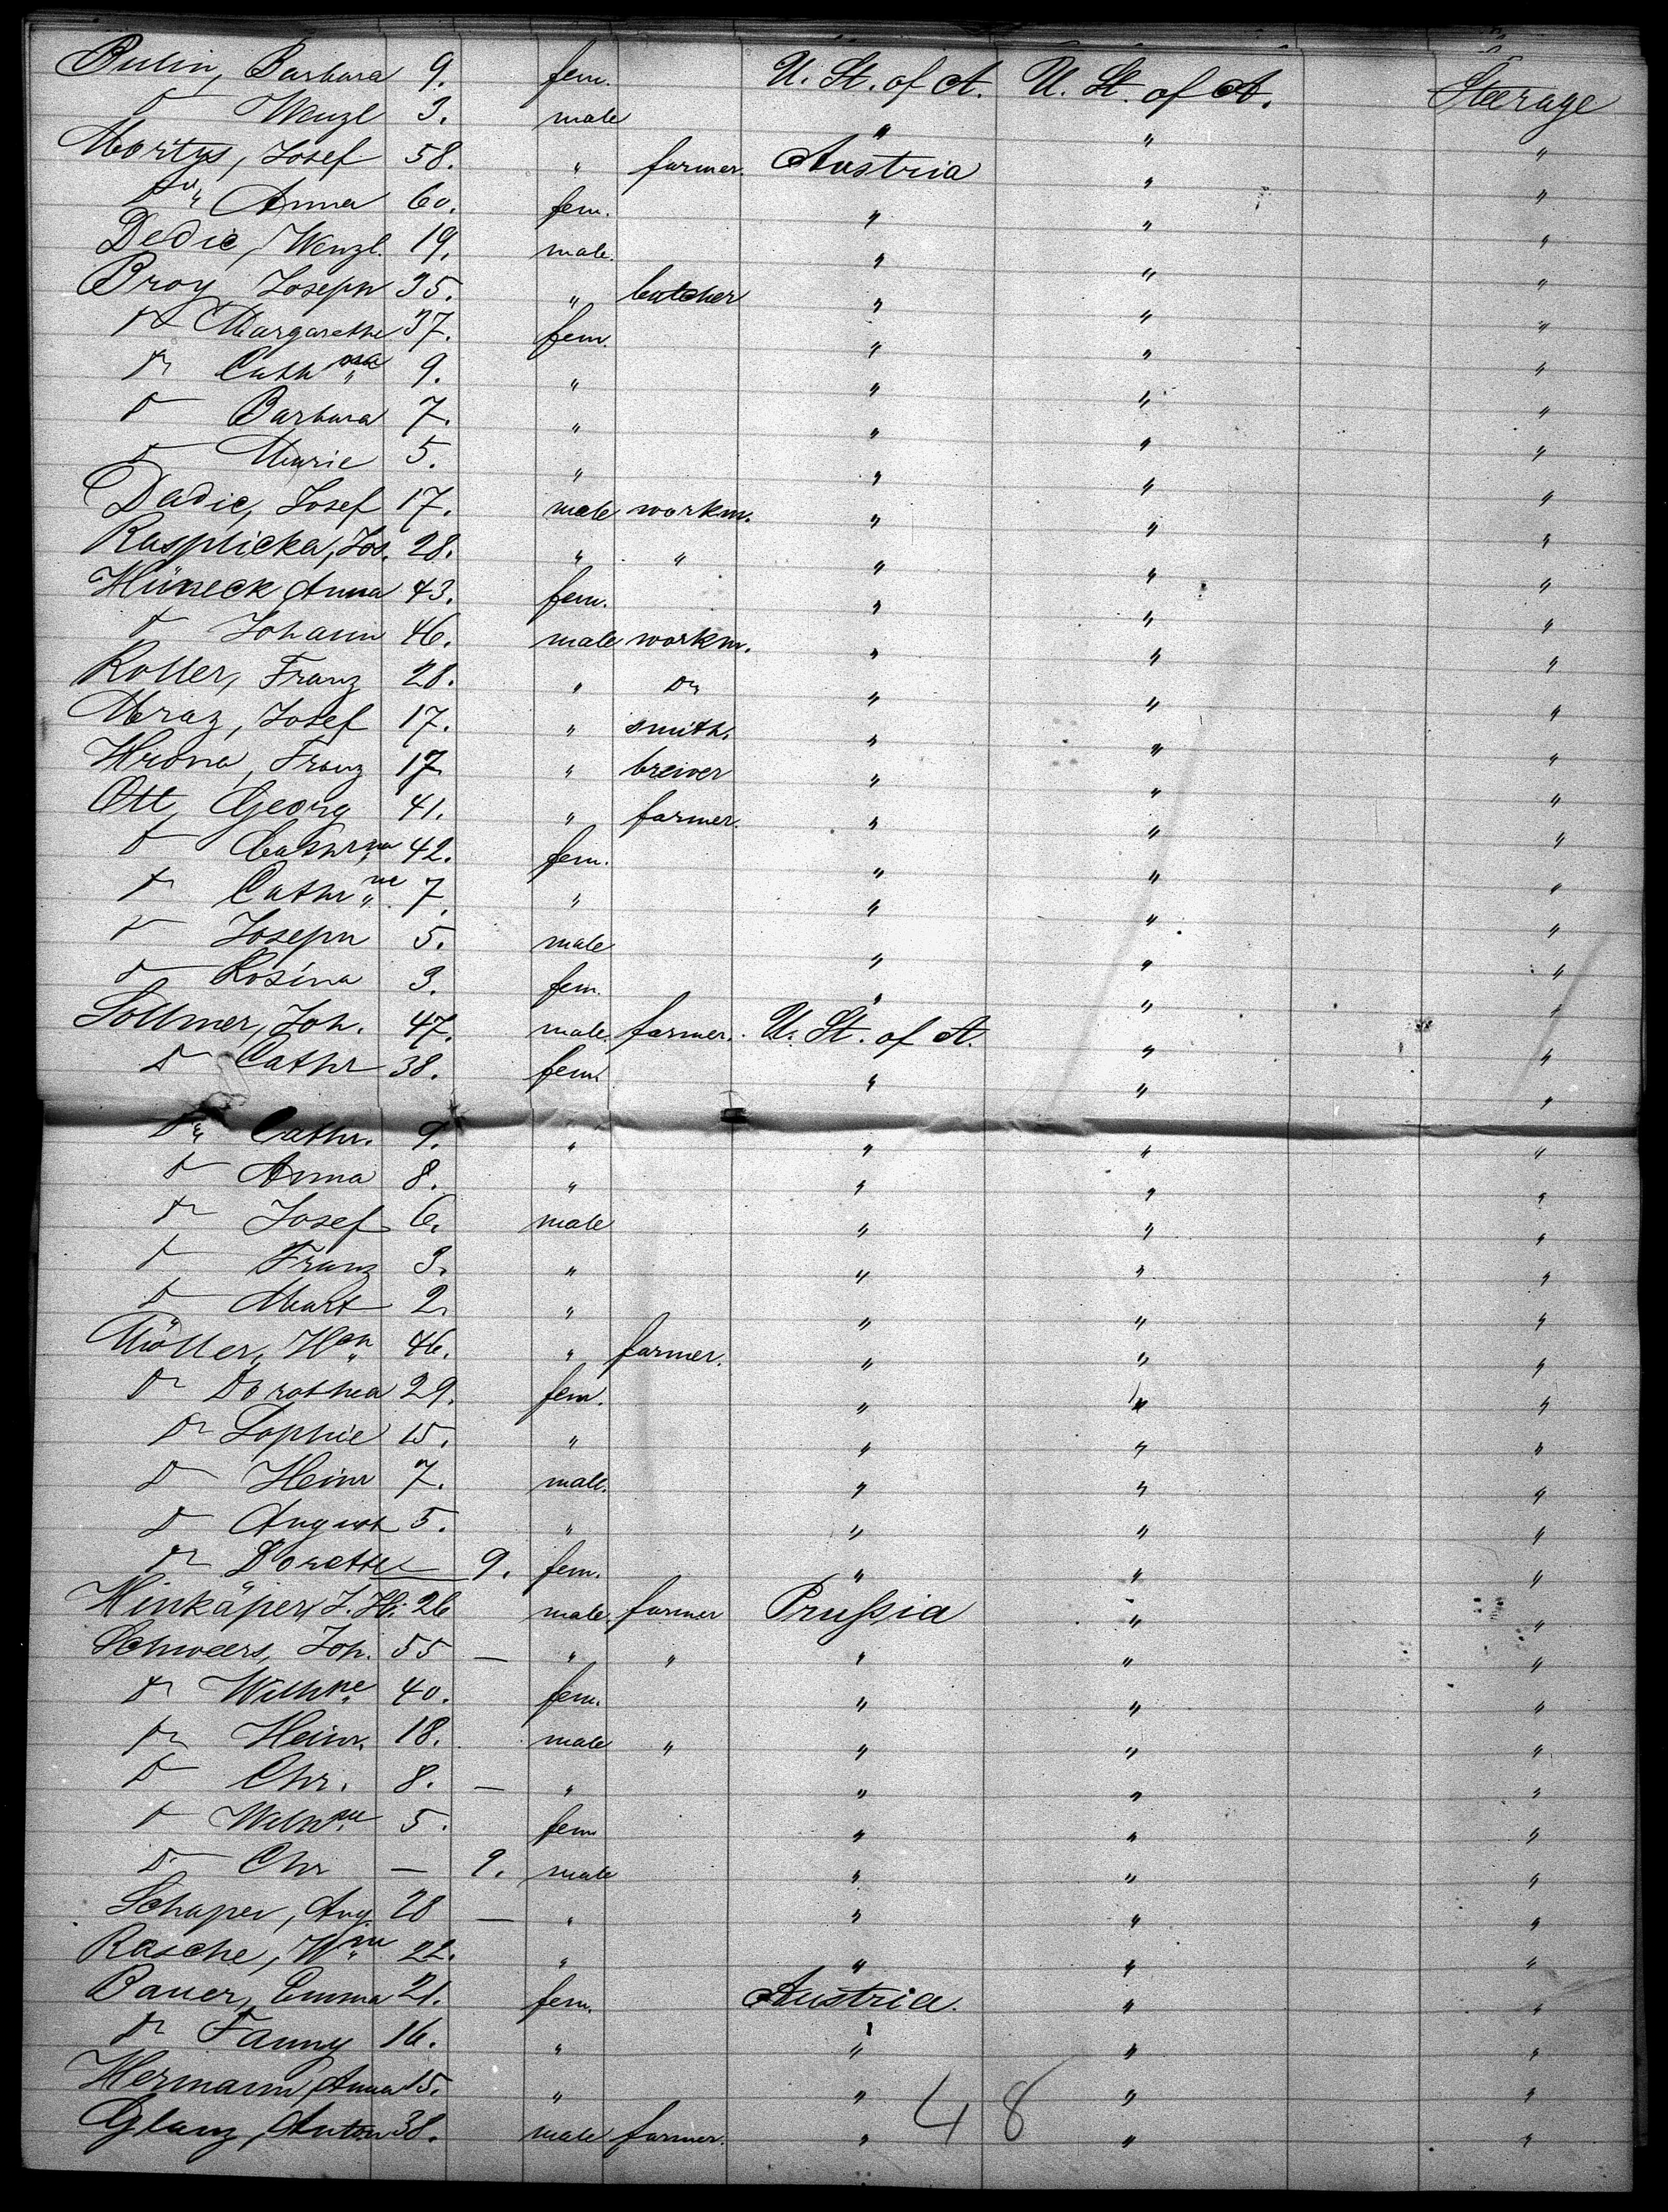 Bulin, Barbara 9. fem. U. St. of A. U. St. of A. Steerage
do Wenzl 3. male " " "
Mortys, Josef 58. " farmer. Austria " "
do Anna 60. fem. " " "
Dedic, Wenzl. 19. male. " " "
Broy Joseph 35. " butcher " " "
do Margarethe 37. fem. " " "
do Cathna 9. " " " "
do Barbara 7. " " " "
do Marie 5. " " " "
Dadic, Josef 17. male workm. " " "
Rusplicka, Jos. 28. " " " " "
Hüneck Anna 43. fem. " " "
do Johann 46. male workm. " " "
Koller, Franz 28. " do " " "
Mraz, Josef 17. " smith. " " "
Hrdna, Franz 17. " breiver " " "
Ott, Georg 41. " farmer. " " "
do Cathrna 42. fem. " " "
do Cathrne 7. " " " "
do Joseph 5. male " " "
do Rosina 3. fem. " " "
Sollmer, Joh. 47. male. farmer. U. St. of A. " "
do Cathr 38. fem. " " "
do Cathr. 9. " " " "
do Anna 8. " " " "
do Josef 6. male " " "
do Franz 3. " " " "
do Mart 2. " " " "
Möller, Hch 46. " farmer. " " "
do Dorothea 29. fem. " " "
do Sophie 15. " " " "
do Heinr 7. male. " " "
do August 5. " " " "
do Dorothe — 9. fem. " " "
Hinkäper, J. H. 26 male. farmer Prußia " "
Schweers, Joh. 55 — " " " " "
do Wilhne 40. fem. " " "
do Heinr. 18. male " " " "
do Chr. 8. — " " " "
do Wilhne 5. fem " " "
do Chr — 9. male " " "
Schaper, Aug. 28 — " " " "
Rasche, Wm 22. " " " "
Bauer, Emma 21. fem. Austria. " "
do Fanny 16. " " " "
Hermann, Anna 15. " " " "
Glanz, Anton 38. male farmer. " " "
48